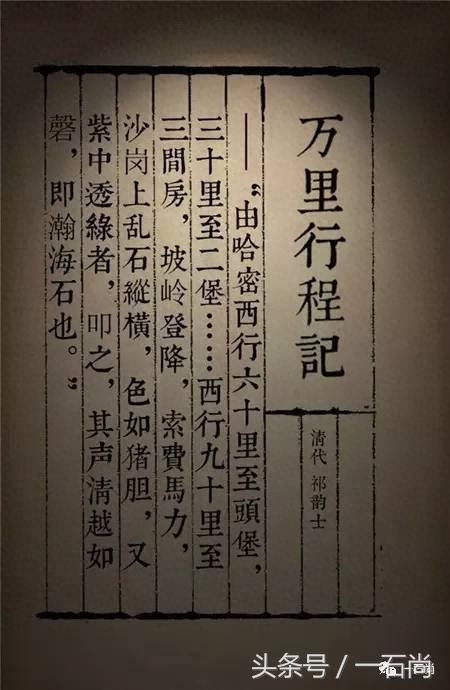 万里行程記
清代 祁韵士
——“由哈密西行六十里至頭堡，
三十里至二堡……西行九十里至
三間房，坡岭登降，索費馬力，
沙岗上乱石縱横，色如猪胆，又
紫中透綠者，叩之，其声清越如
磬，即瀚海石也。”
一石尚
头条号／一石尚